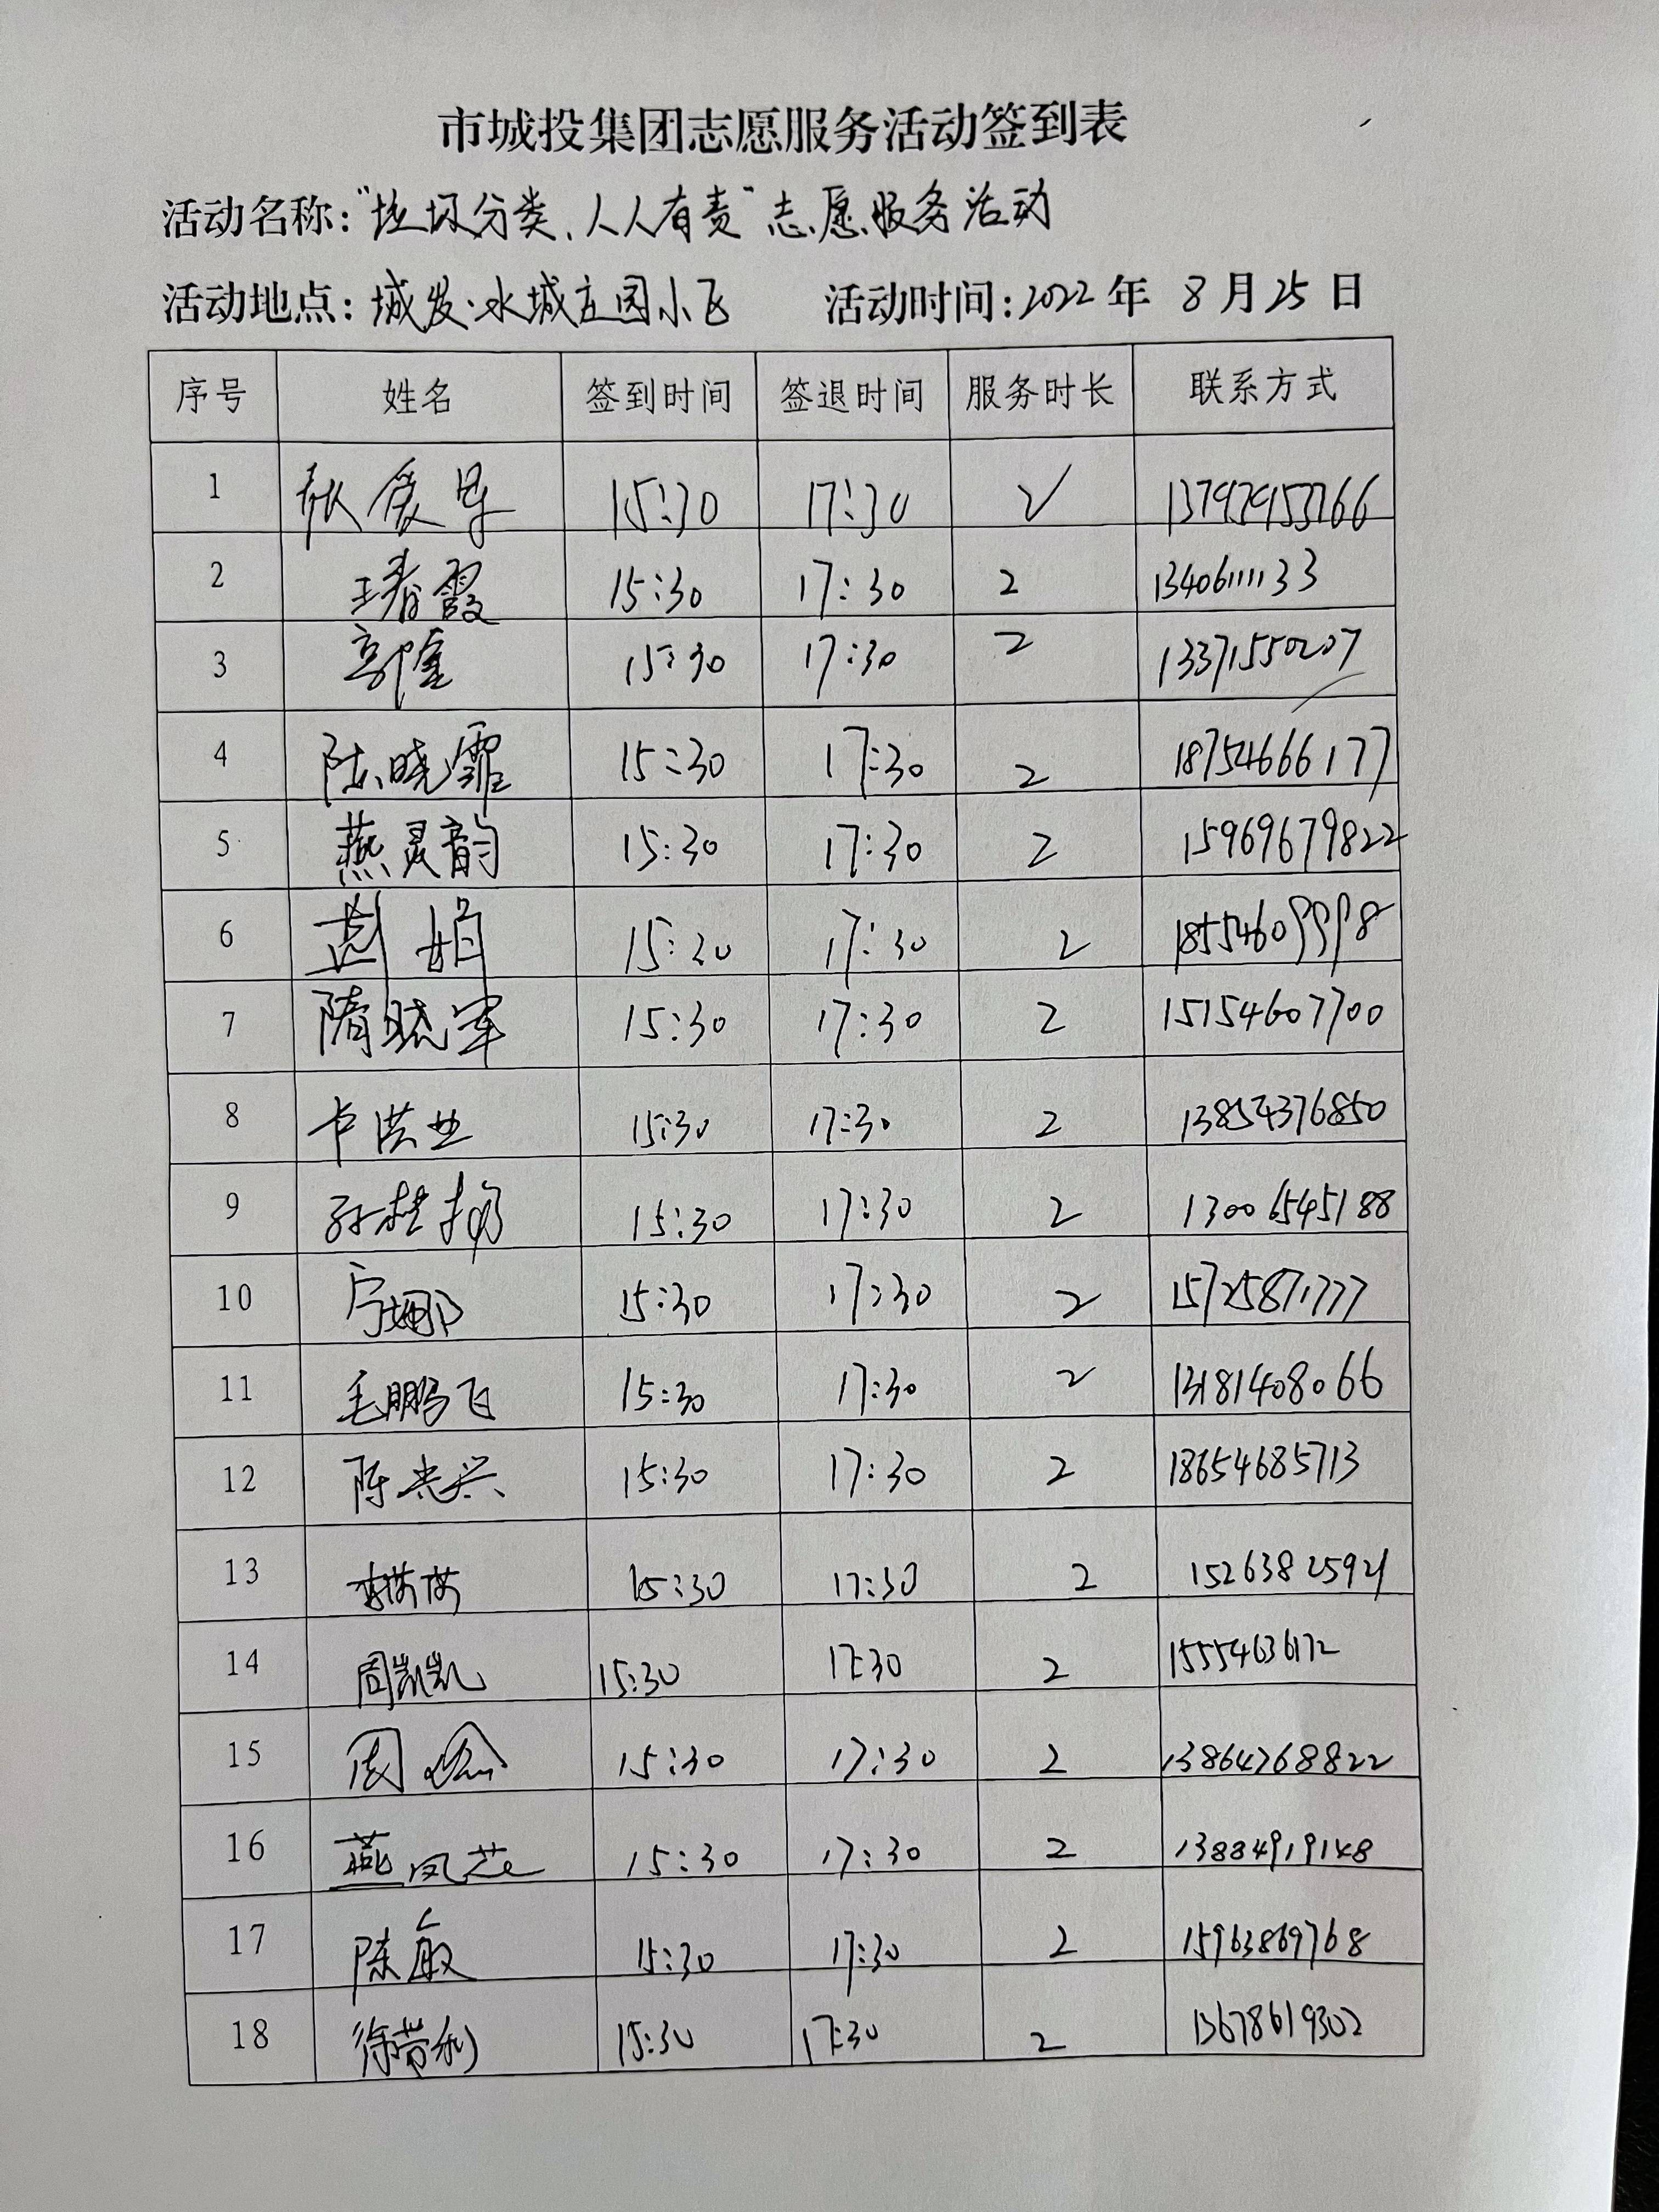 市城投集团志愿服务活动签到表
活动名称:"垃圾分类、人人有责"志愿服务活动
活动地点:城发·水城庄园小区 活动时间:2022年 8月25日
序号 姓名 签到时间 签退时间 服务时长 联系方式
1 15:30 17:30 2
2 王春霞 15:30 17:30 2 13406111133
3 15:30 17:30 2 13371550207
4 陈晓霏 15:30 17:30 2 18754666177
5 燕灵韵 15:30 17:30 2 15969679822
6 赵娟 15:30 17:30 2 18554609998
7 隋晓军 15:30 17:30 2 15154607700
8 卢洪业 15:30 17:30 2 13854376850
9 孙桂扬 15:30 17:30 2 13006545188
10 15:30 17:30 2 15725871777
11 毛鹏飞 15:30 17:30 2 13181408066
12 陈光兴 15:30 17:30 2 18654685713
13 15:30 17:30 2 15263825921
14 周凯凯 15:30 17:30 2 15554636172
15 15:30 17:30 2 13864768822
16 燕凤芝 15:30 17:30 2 13884919148
17 陈敏 15:30 17:30 2 15963869768
18 15:30 17:30 2 13678619302